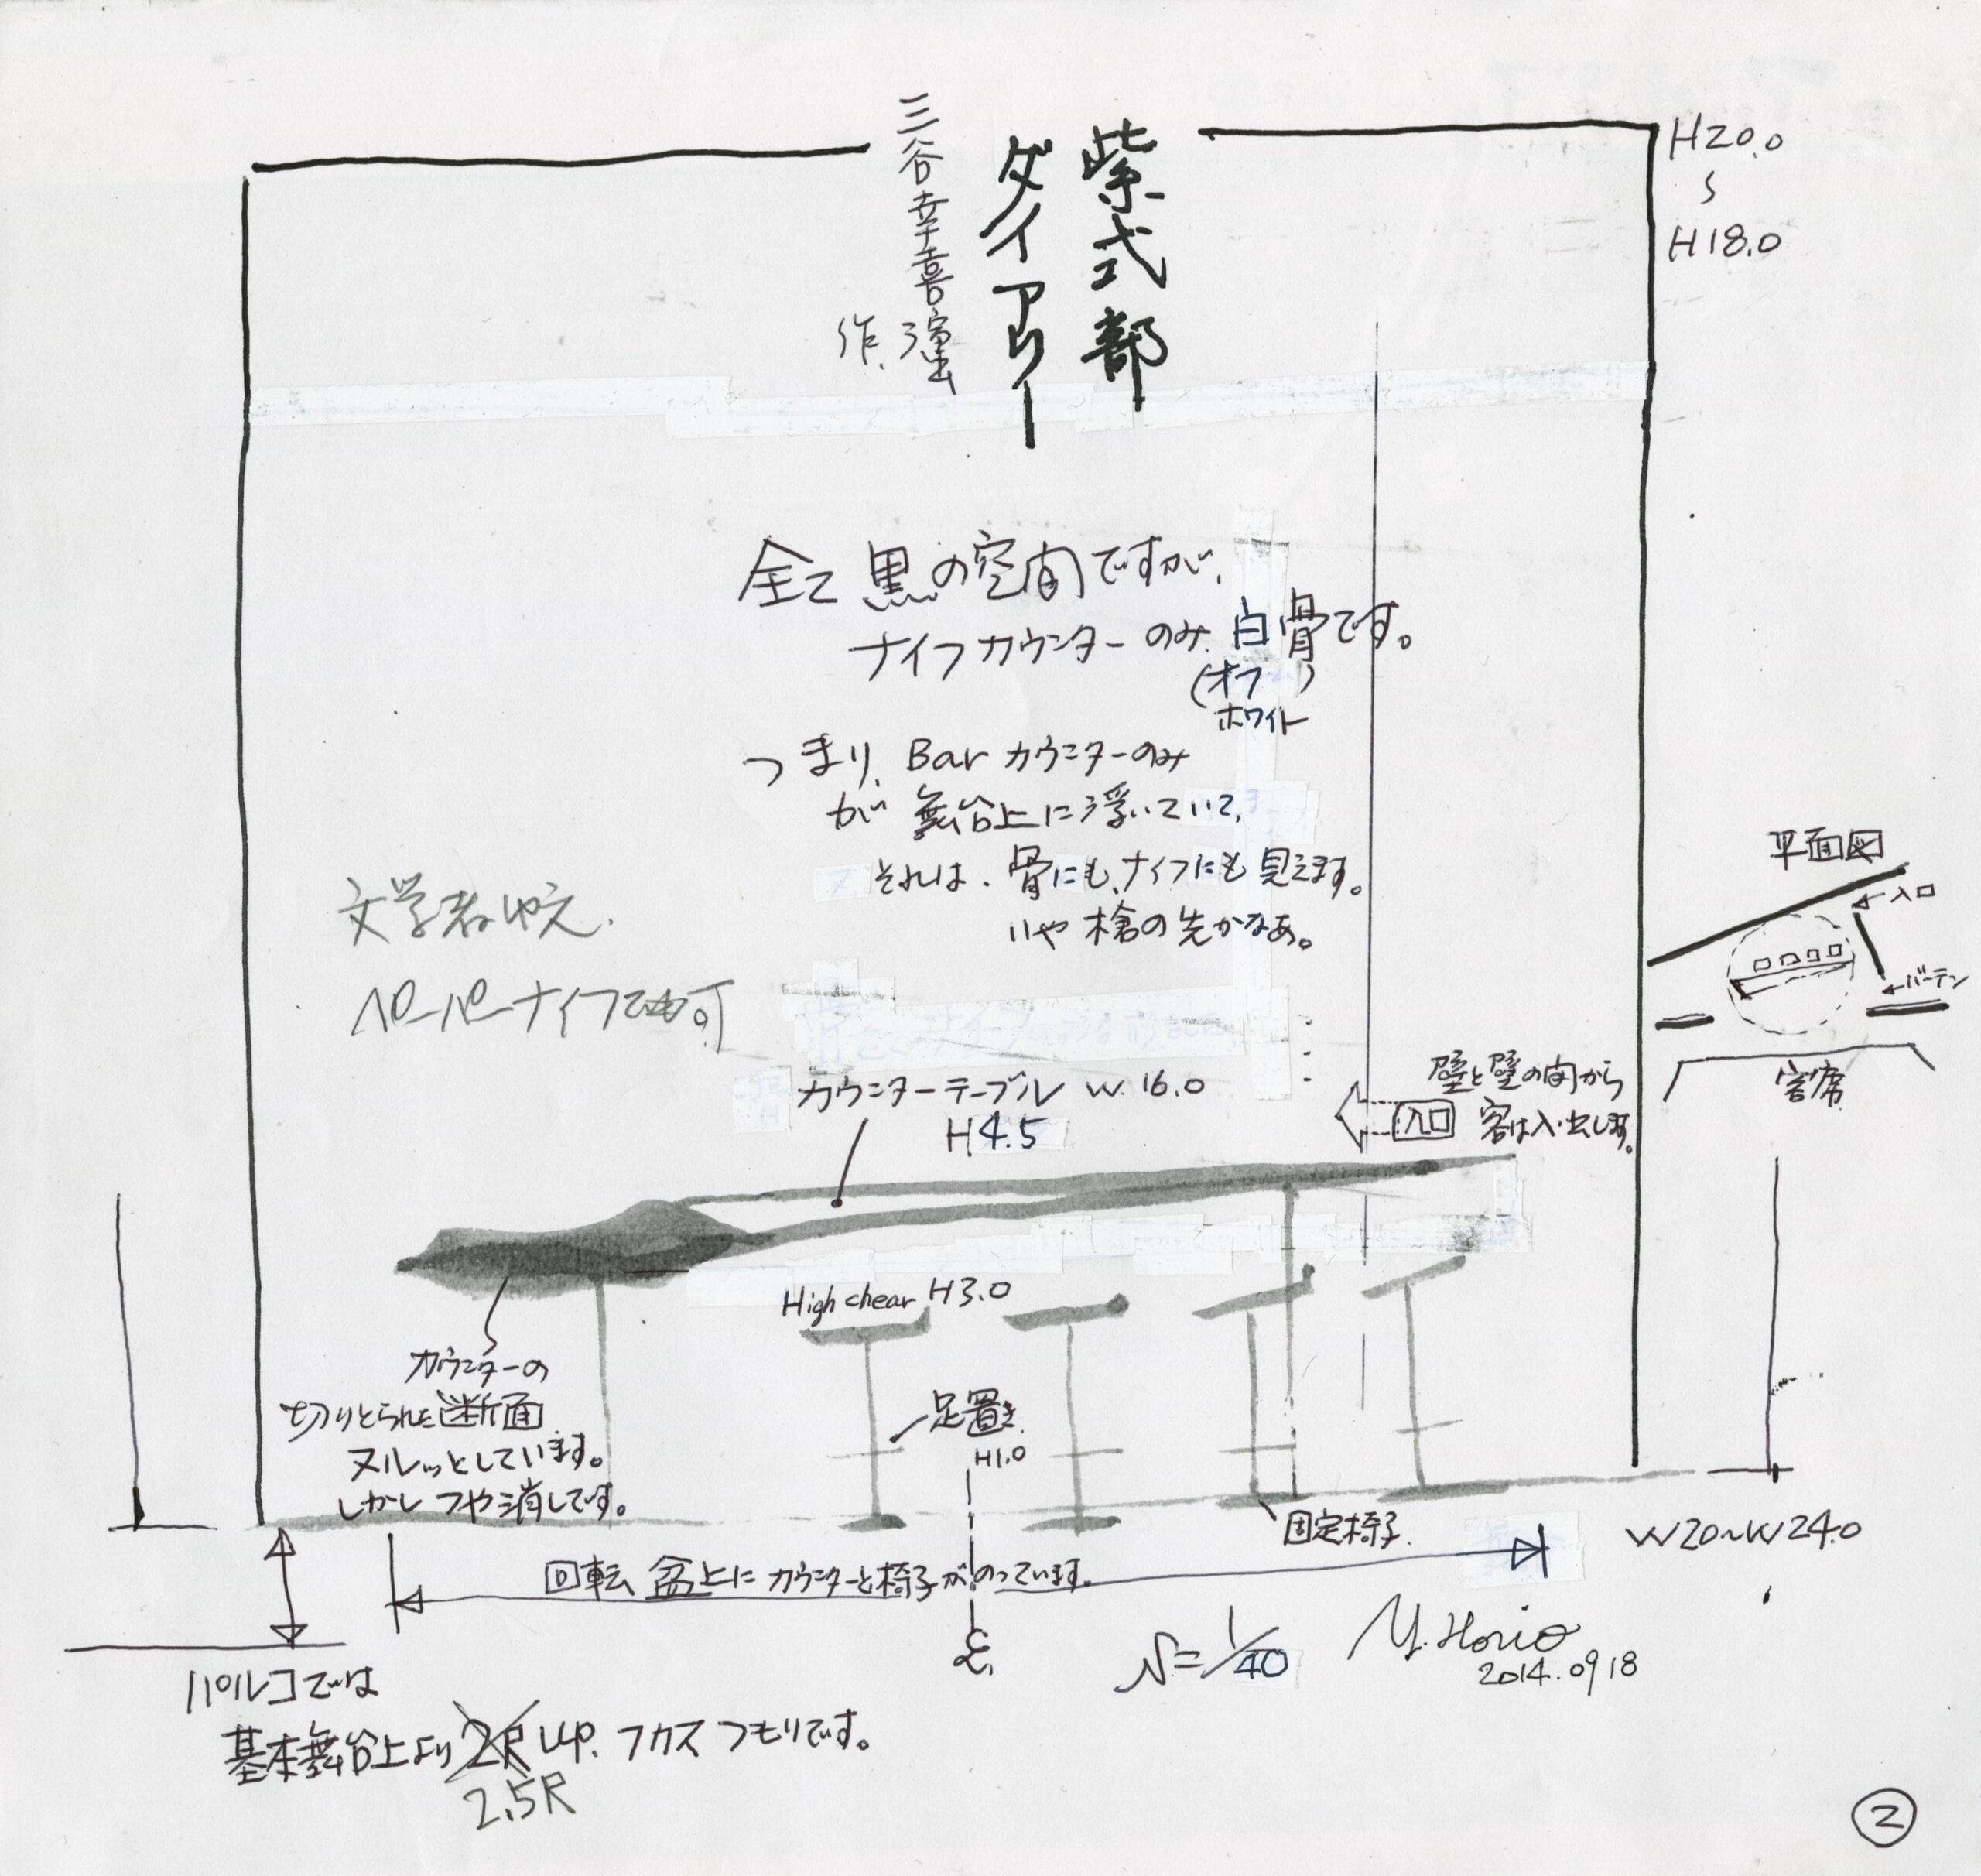 紫式部
ダイアリー
三谷幸喜
作、演出
H20.0
〜
H18.0
全て黒の空間ですが、
ナイフカウンターのみ、白骨です。
(オフホワイト)
つまり、Barカウンターのみ
が舞台上に浮いていて、
それは、骨にも、ナイフにも見えます。
いや槍の先かなあ。
文学者ゆえ、
ペーパーナイフでも可。
平面図
←入口
←バーテン
客席
カウンターテーブル W.16.0
H4.5
壁と壁の間から
入口 客は入・出します。
High chear H3.0
カウンターの
切りとられた断面
ヌルッとしています。
しかしつや消しです。
足置き
H1.0
固定椅子.
W20〜W24.0
回転盆上にカウンターと椅子がのっています。
S=1/40
M.Horio
2014.09 18
パルコでは
基本舞台上より2R UP. フカスつもりです。
2.5R
②